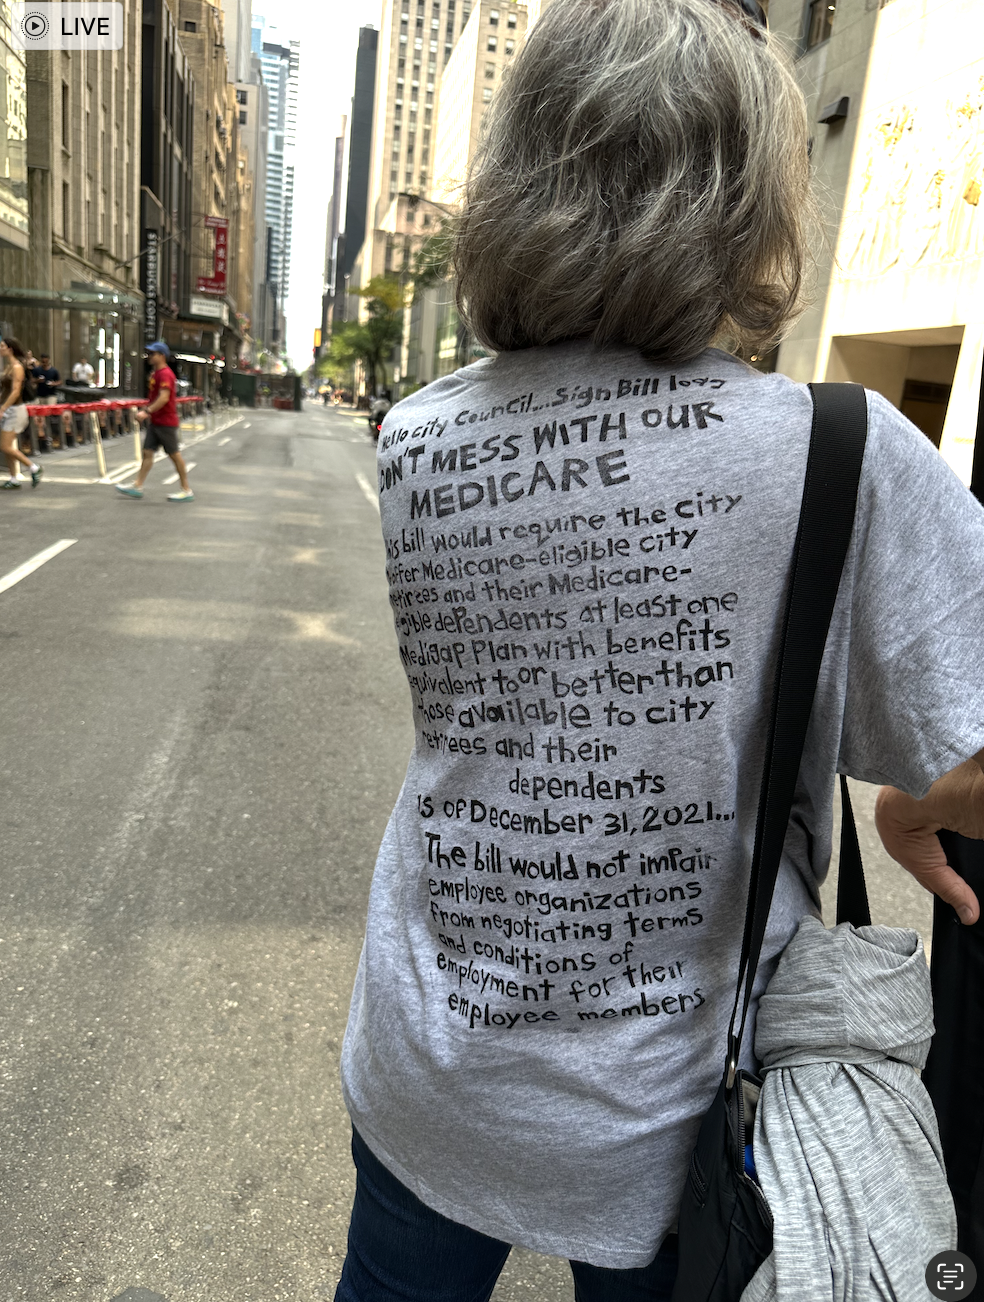 LIVE
Hello city CounCil...Sign Bill 1099
DON'T MESS WITH OUR
MEDICARE
his bill would require the city
offer Medicare-eligible city
retirees and their Medicare-
gible dePendents at least one
Medigap Plan with benefits
quivalent to or better than
those available to city
retirees and their
dependents
is of December 31, 2021...
The bill would not impair
employee organizations
from negotiating terms
and conditions of
employment for their
employee members